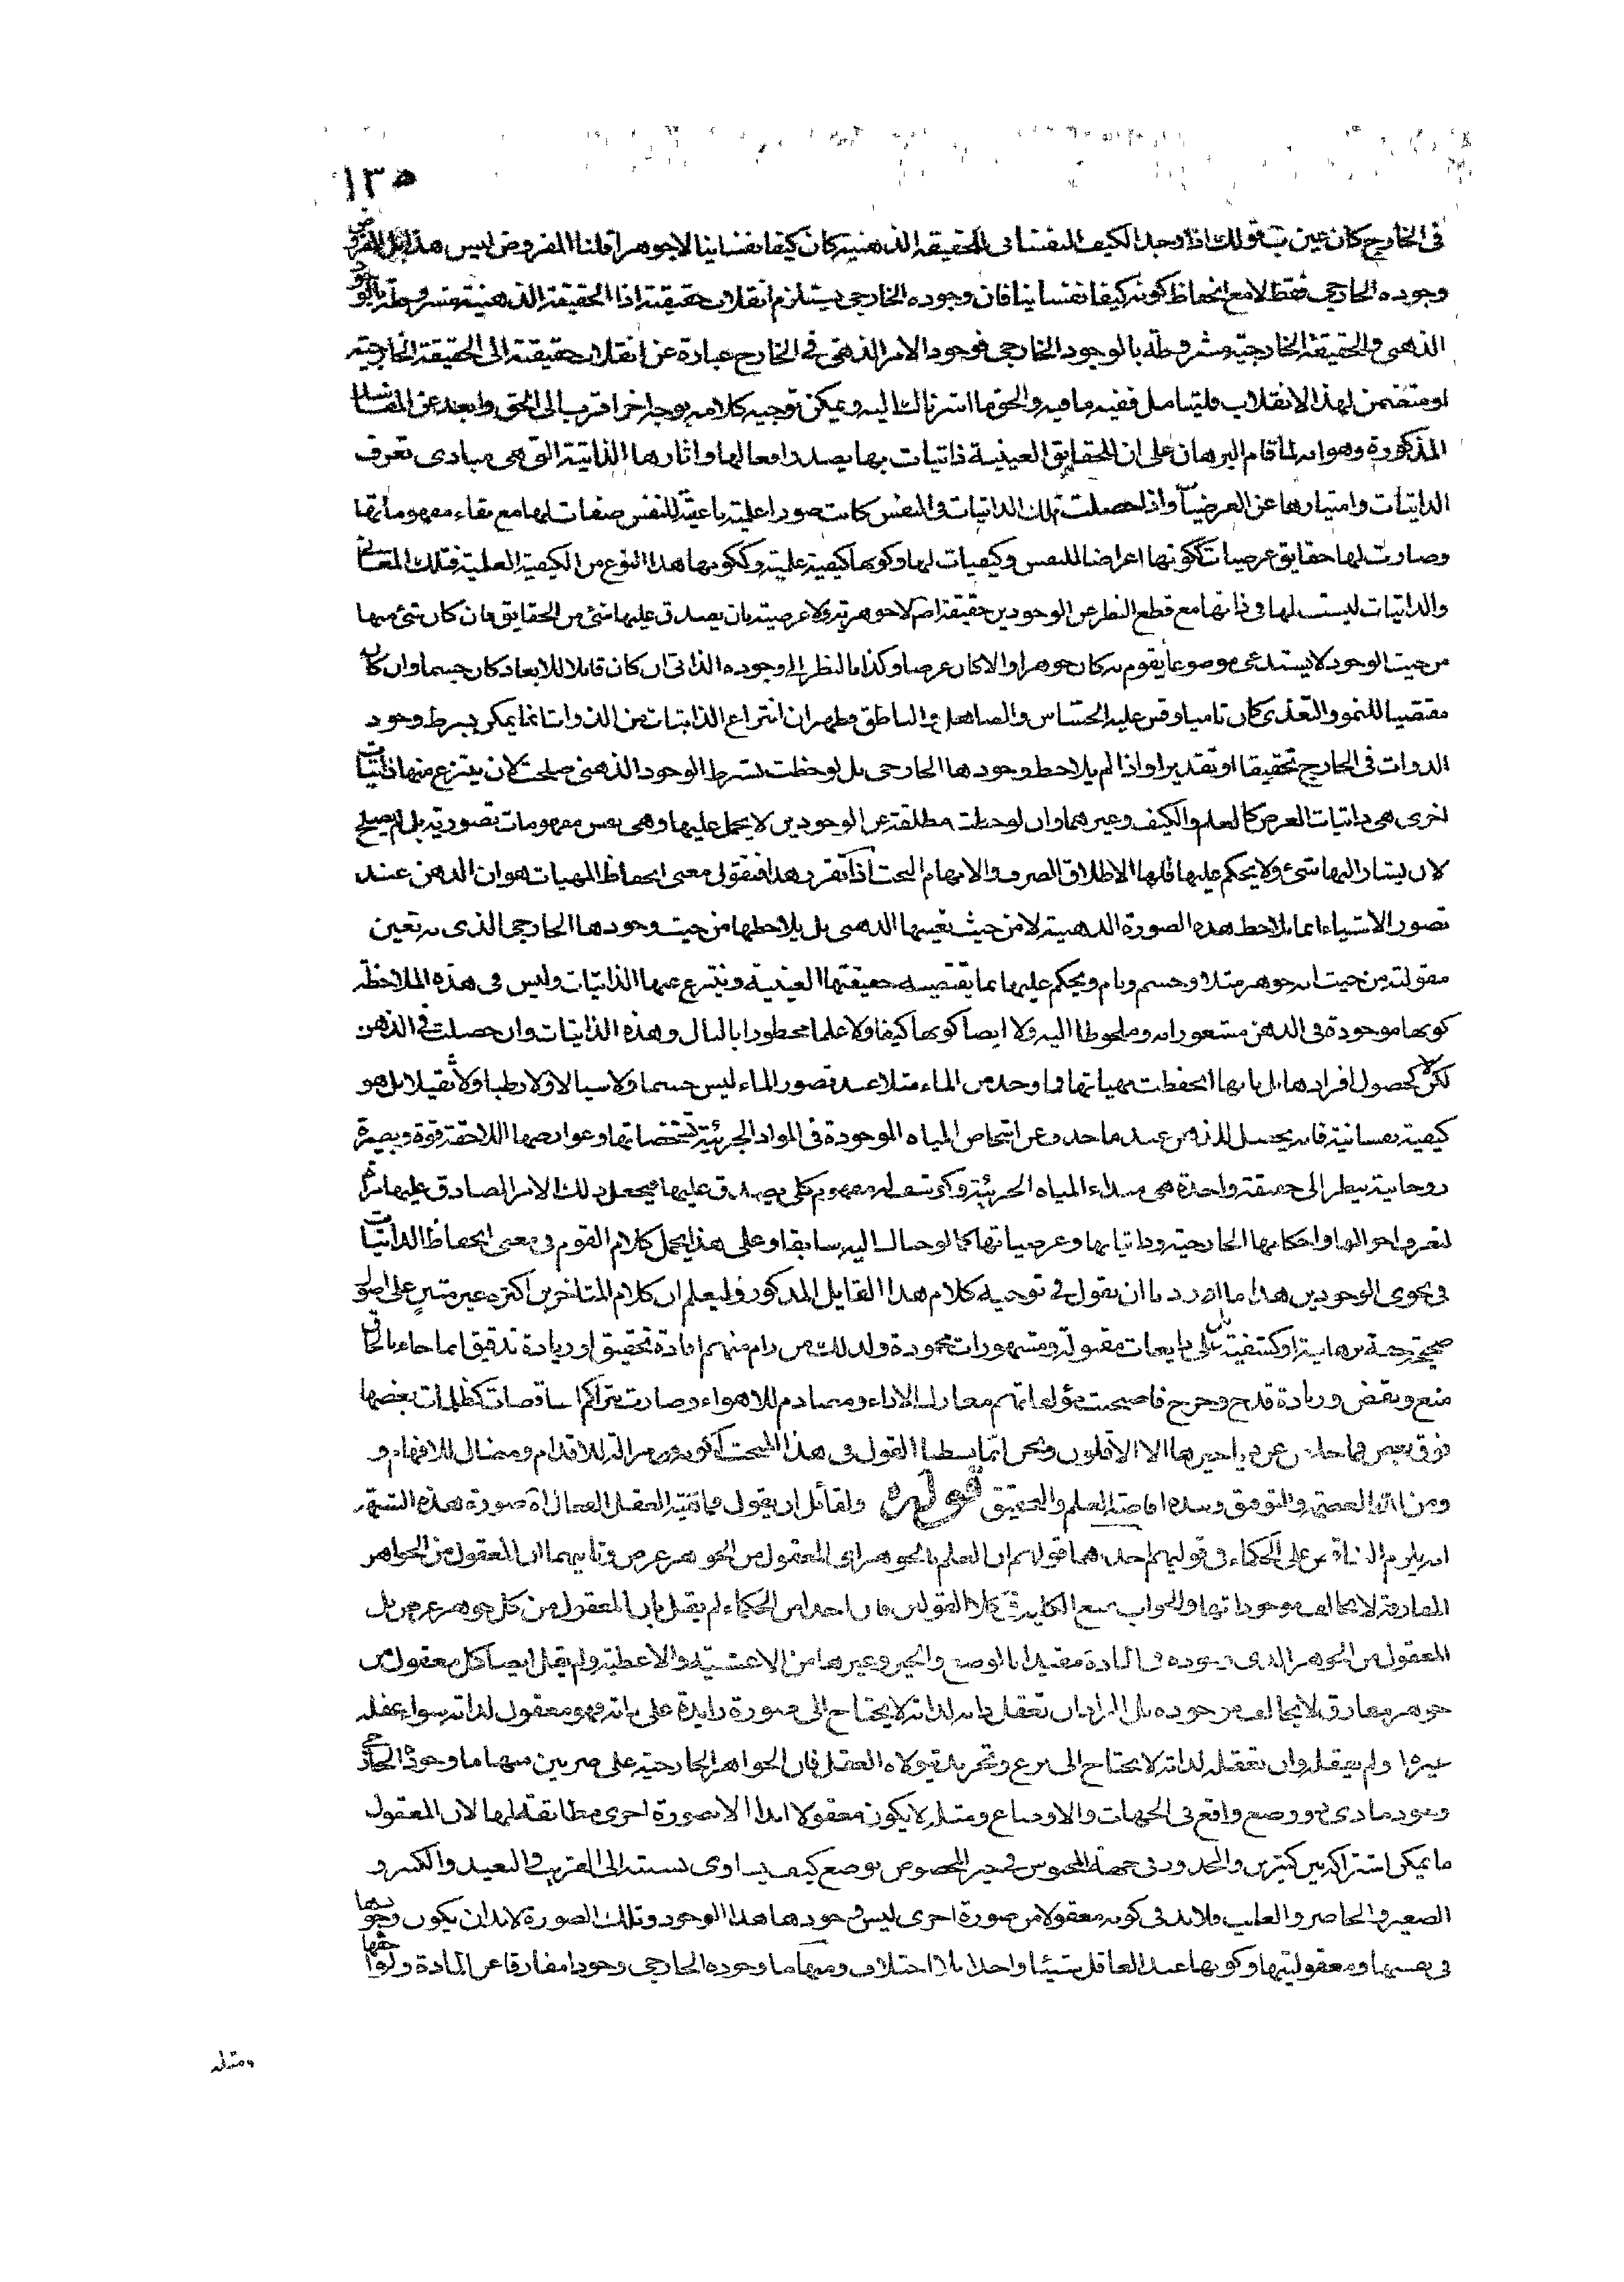 ١٣٥
في الخارج كان عين ب قولك اذا وجد الكيف النفساني الحقيقة الذهنية كان كيفا نفسانيا لا جوهرا قلنا المفروض ليس هذا بل المفروض
وجوده الخارجي فقط لا مع انحفاظ كونه كيفا نفسانيا فان وجوده الخارجي يستلزم انقلاب حقيقته اذا الحقيقة الذهنية مشروطة بالوجود
الذهني والحقيقة الخارجية مشروطة بالوجود الخارجي فوجود الامر الذهني في الخارج عبارة عن انقلاب حقيقته الى الحقيقة الخارجية
او متضمن لهذا الانقلاب فليتامل ففيه ما فيه والحق ما اشرناك اليه ويمكن توجيه كلامه بوجه اخر اقرب الى الحق وابعد عن المفاسد
المذكورة وهو انه لما قام البرهان على ان للحقايق العينية ذاتيات بها يصدر افعالها واثارها الذاتية التي هي مبادى تعرف
الذاتيات وامتيازها عن العرضيات واذا حصلت تلك الذاتيات في النفس كانت صورا علمية ناعتة للنفس صفات لها مع بقاء مفهوماتها
وصارت لها حقايق عرضيات ككونها اعراضا للنفس وكيفيات لها وكونها كيفية علمية وككونها هذا النوع من الكيفية العلمية فتلك المعاني
والذاتيات ليست لها في ذاتها مع قطع النظر عن الوجودين حقيقة اصلا لا جوهرية ولا عرضية بان يصدق عليها شئ من الحقايق فان كان شئ منها
من حيث الوجود لا يستدعى موضوعا يقوم به كان جوهرا والا كان عرضا وكذا بالنظر الى وجوده الذاتي ان كان قابلا للابعاد كان جسما وان كان
مقتضيا للنمو والتغذى كان ناميا وقس عليه الحساس والصاهل والناطق فظهر ان انتزاع الذاتيات من الذوات انما يمكن بشرط وجود
الذوات في الخارج تحقيقا او تقديرا واذا لم يلاحظ وجودها الخارجي بل لوحظت بشرط الوجود الذهني صلحت لان ينتزع منها ذاتيات
اخرى هي ذاتيات العرض كالعلم والكيف وغيرهما وان لوحظت مطلقة عن الوجودين لا يحمل عليها وهي نفس مفهومات تصورية بل لم يصلح
لان يشار اليها شئ ولا يحكم عليها فلها الاطلاق الصرف والابهام البحت اذا تقرر هذا فنقول معنى انحفاظ المهيات هو ان الذهن عند
تصور الاشياء انما يلاحظ هذه الصورة الذهنية لا من حيث تعينها الذهني بل يلاحظها من حيث وجودها الخارجي الذى به تعين
مقولته من حيث انه جوهر مثلا وجسم ونام ويحكم عليها بما يقتضيه حقيقتها العينية وينتزع عنها الذاتيات وليس في هذه الملاحظة
كونها موجودة في الذهن مشعورا به وملحوظا اليه ولا ايضا كونها كيفا ولا علما محظورا بالبال وهذه الذاتيات وان حصلت في الذهن
لكن لا كحصول افرادها بل بانها انحفظت مهياتها فما وجد من الماء مثلا عند تصور الماء ليس جسما ولا سيالا ولا رطبا ولا ثقيلا بل هو
كيفية نفسانية فانه يحصل للذهن عند ما حذف عن اشخاص المياه الموجودة في المواد الجزئية تشخصاتها وعوارضها اللاحقة قوة وبصيرة
روحانية ينظر الى حقيقة واحدة هي مبداء المياه الجزئية وكى مفهوم كلى يصدق عليها فيجعل ذلك الامر الصادق عليها مرآة
لتعرف احوالها واحكامها الخارجية وذاتياتها وعرضياتها كما لوحناك اليه سابقا وعلى هذا يحمل كلام القوم في معنى انحفاظ الذاتيات
في نحوى الوجودين هذا ما اردنا ان نقول في توجيه كلام هذا القايل المذكور وليعلم ان كلام المتاخرين اكثره غير مبني على اصول
صحيحة برهانية او كشفية بل على بايعات مقبولة ومشهورات محمودة ولذلك من رام منهم افادة تحقيق او زيادة تدقيق انما جاء بالحاق
منع ونقض وزيادة قدح وجرح فاصبحت مؤلفاتهم معارك الاراء ومصادم للاهواء وصارت بتراكم كظلمات بعضها
فوق بعض فما خلص عن دياجيرها الا الاقلون ونحن انما بسطنا القول في هذا المبحث لكونه مزالة للاقدام ومضال للافهام و
ومن الله العصمة والتوفيق وبيده افاضة العلم والتحقيق قوله ولقائل ان يقول صورة هذه الشبهة
انه يلزم التناقض على الحكماء في قوليهم احدهما قولهم ان العلم بالجوهر اى المعقول من الجوهر عرض وثانيهما ان المعقول من الجواهر
المفارقة لا يخالف موجوداتها والجواب بمنع الكلية في كلا القولين فان احدا من الحكماء لم يقل بان المعقول من كل جوهر عرض بل
المعقول من الجوهر الذى وجوده في المادة مقيدا بالوضع والحيز وغيرها من الاغشية والاغطية ولم يقل ايضا كل معقول من
جوهر مفارق لا يخالف موجوده بل المراد ان تعقل ذاته لذاته لا يحتاج الى صورة زايدة على ذاته فهو معقول لذاته سواء عقله
غيره او لم يعقله وان تعقله لذاته لا يحتاج الى نزع وتجريد يتولاه العقل فان الجواهر الخارجية على ضربين منها ما وجوده الخارجي
وجود مادى ذو وضع واقع في الجهات والاوضاع ومثله لا يكون معقولا ابدا الا بصورة اخرى مطابقة لها لان المعقول
ما يمكن اشتراكه بين كثيرين والمحدود في جهة المحبوس في حيز المخصوص بوضع كيف يساوى نسبته الى القريب والبعيد والكبير و
الصغير والحاضر والغايب فلا بد في كونه معقولا من صورة اخرى ليس وجودها هذا الوجود وتلك الصورة لا بد ان يكون وجودها
في نفسها ومعقوليتها وكونها عند العاقل شيئا واحدا بلا اختلاف ومنها ما وجوده الخارجي وجودا مفارقا عن المادة ولواحقها
ومثله